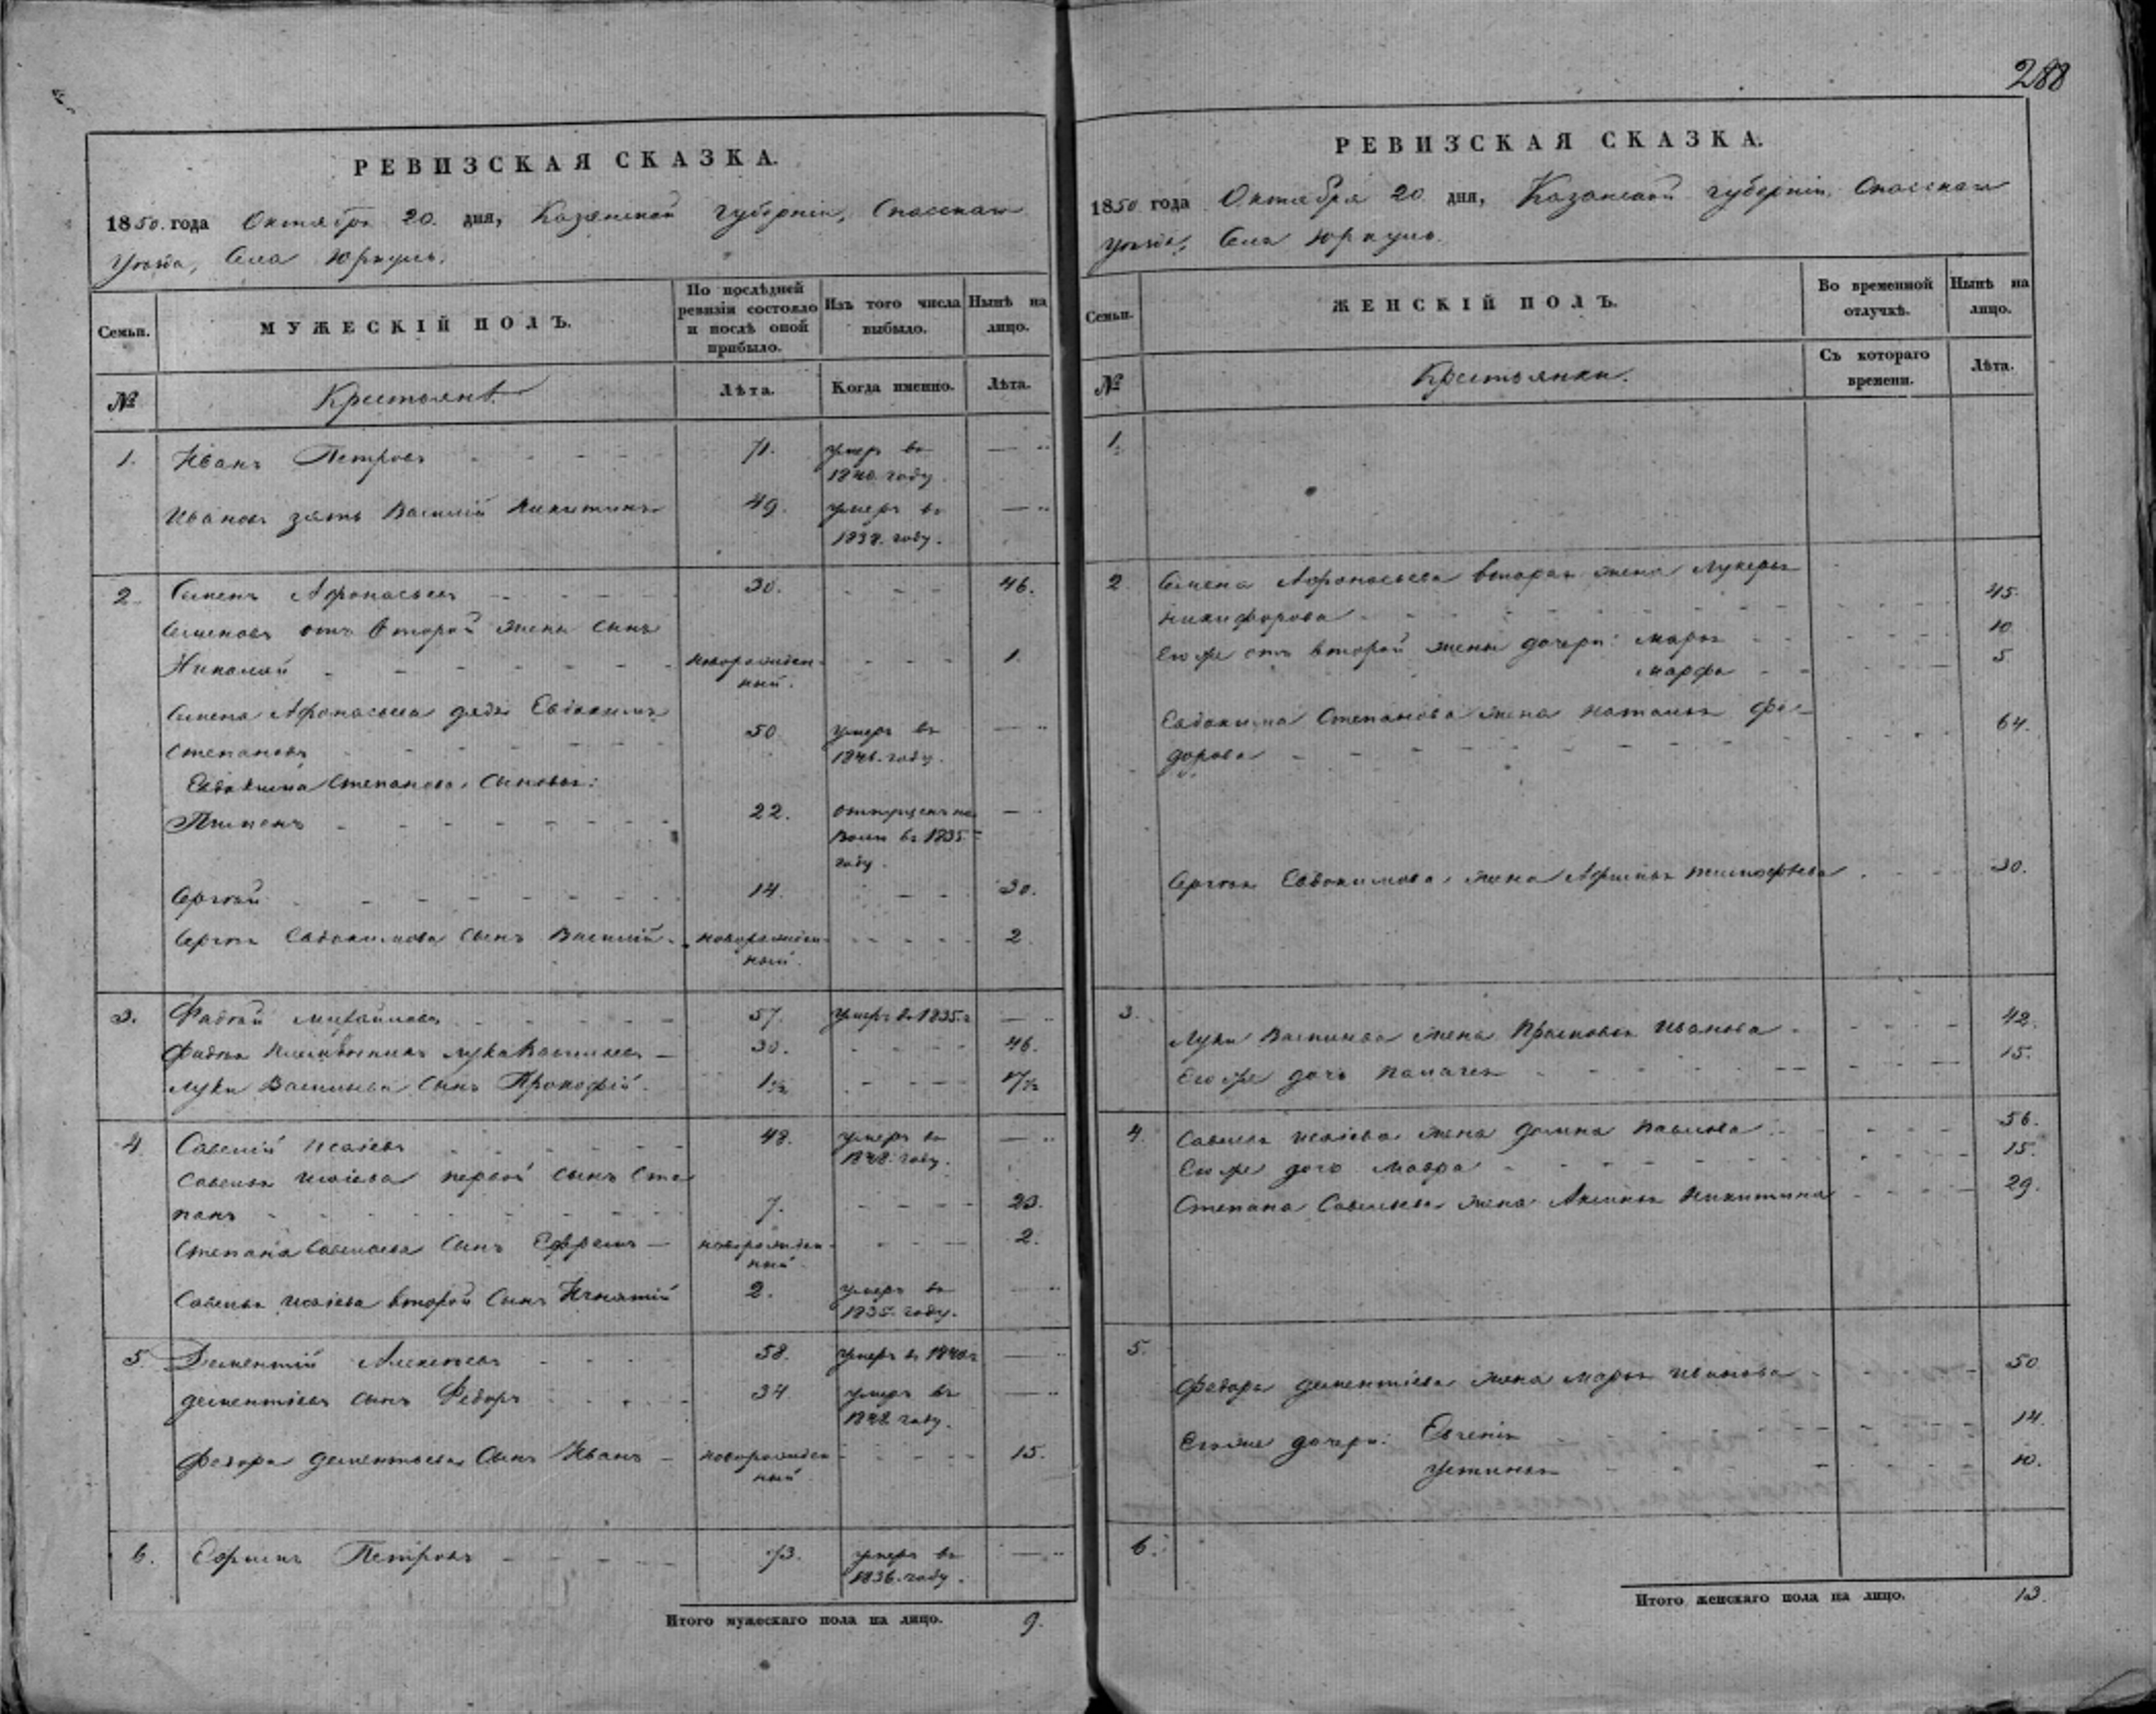 288
РЕВИЗСКАЯ СКАЗКА.
1850. года Октября 20. дня, Казанской губерніи, Спасскаго
уѣзда, Села Юркуль.
Семьи.
МУЖЕСКІЙ ПОЛЪ.
По послѣдней
ревизіи состояло
и послѣ оной
прибыло.
Изъ того числа
выбыло.
Нынѣ на
лицо.
№
Крестьянъ
Лѣта.
Когда именно.
Лѣта.
1. Иванъ Петровъ 71. умеръ въ
1840. году.
Ивановъ зять Василій Никитинъ 49. умеръ въ
1838. году.
2. Семенъ Афонасьевъ 30. 46.
Семеновъ отъ второй жены сынъ
Николай новорожден-
ный. 1.
Семена Афонасьева дядя Евдокимъ
Степановъ 50 умеръ въ
1846. году.
Евдокима Степанова сыновья:
Пименъ 22. отпущенъ на
волю въ 1835
году.
Сергѣй 14. 30.
Сергѣя Евдокимова сынъ Василій новорожден-
ный. 2.
3. Фадѣй Михайловъ 57. умеръ въ 1835. г.
Фадѣя племянникъ Лука Васильевъ 30. 46.
Луки Васильева сынъ Прокофій. 1½ 17½
4. Савелій Исаіевъ 48. умеръ въ
1848. году.
Савелья Исаіева первой сынъ Сте
панъ 7. 23.
Степана Савельева сынъ Ефремъ новорожден-
ный. 2.
Савелья Исаіева второй сынъ Игнатій 2. умеръ въ
1835. году.
5. Дементій Алексѣевъ 58. умеръ въ 1840. г.
Дементіевъ сынъ Федоръ 34. умеръ въ
1848. году.
Федора Дементьева сынъ Иванъ новорожден
ный. 15.
6. Ефимъ Петровъ 73. умеръ въ
1836. году.
Итого мужескаго пола на лицо. 9.
РЕВИЗСКАЯ СКАЗКА.
1850. года Октября 20 дня, Казанской губерніи, Спасскаго
уѣзда, Села Юркуль.
Семьи.
ЖЕНСКІЙ ПОЛЪ.
Во временной
отлучкѣ.
Нынѣ на
лицо.
№
Крестьянки.
Съ котораго
времени.
Лѣта.
1.
2. Семена Афонасьева вторая жена Лукерья
Никифорова 45.
Его же отъ второй жены дочери: Марья 10
Марфа 5.
Евдокима Степанова жена Наталья Фе-
дорова 64.
Сергѣя Евдокимова жена Афимья Тимофѣева 30.
3. Луки Васильева жена Прасковья Иванова 42.
Его же дочь Палагея 15.
4. Савелья Исаіева жена Домна Павлова 56.
Его же дочь Мавра 15.
Степана Савельева жена Аксинья Никитина 29.
5. Федора Дементіева жена Марья Иванова 50
Его же дочери: Евгенія 14.
Устинья 10.
6.
Итого женскаго пола на лицо. 13.